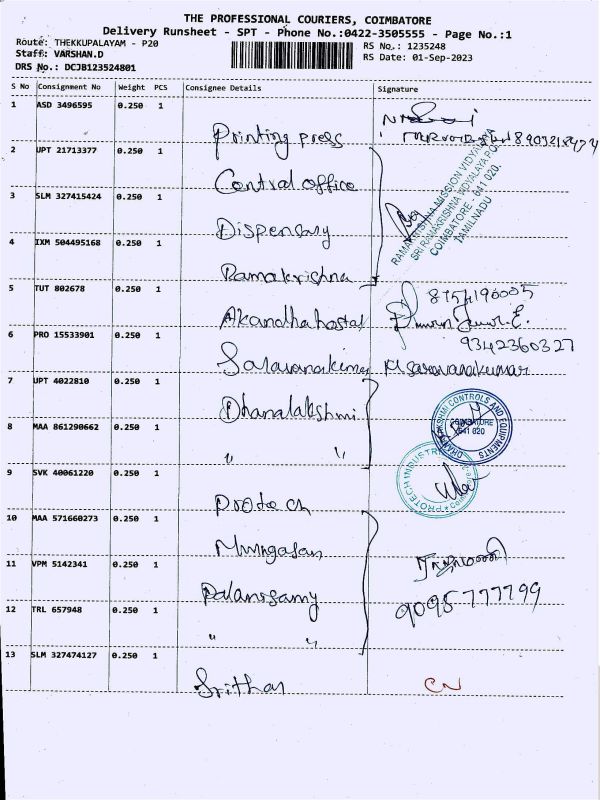 THE PROFESSIONAL COURIERS, COIMBATORE
Delivery Runsheet - SPT - Phone No.:0422-3505555 - Page No.:1
Route: THEKKUPALAYAM - P20
RS No.: 1235248
Staff: VARSHAN.D
RS Date: 01-Sep-2023
DRS No.: DCJB123524801
S No Consignment No Weight PCS Consignee Details Signature
1 ASD 3496595 0.250 1 Printing press
2 UPT 21713377 0.250 1 Central office
3 SLM 327415424 0.250 1 Dispensary
RAMAKRISHNA MISSION VIDYALAYA
SRI RAMAKRISHNA VIDYALAYA PO.
COIMBATORE - 641 020.
TAMILNADU
4 IXM 504495168 0.250 1 Ramakrishna
5 TUT 802678 0.250 1 Akandha hostal
9342360327
6 PRO 15533901 0.250 1 Saravanakumar K Saravanakumar
7 UPT 4022810 0.250 1 Dhanalakshmi
DHANALAKSHMI CONTROLS AND EQUIPMENTS
COIMBATORE
641 020
8 MAA 861290662 0.250 1 " "
9 SVK 40061220 0.250 1 Protech
PROTECH INDUSTRIES
10 MAA 571660273 0.250 1 Murugasan
11 VPM 5142341 0.250 1 Palanisamy
9095777799
12 TRL 657948 0.250 1 " "
13 SLM 327474127 0.250 1 Srithar CN